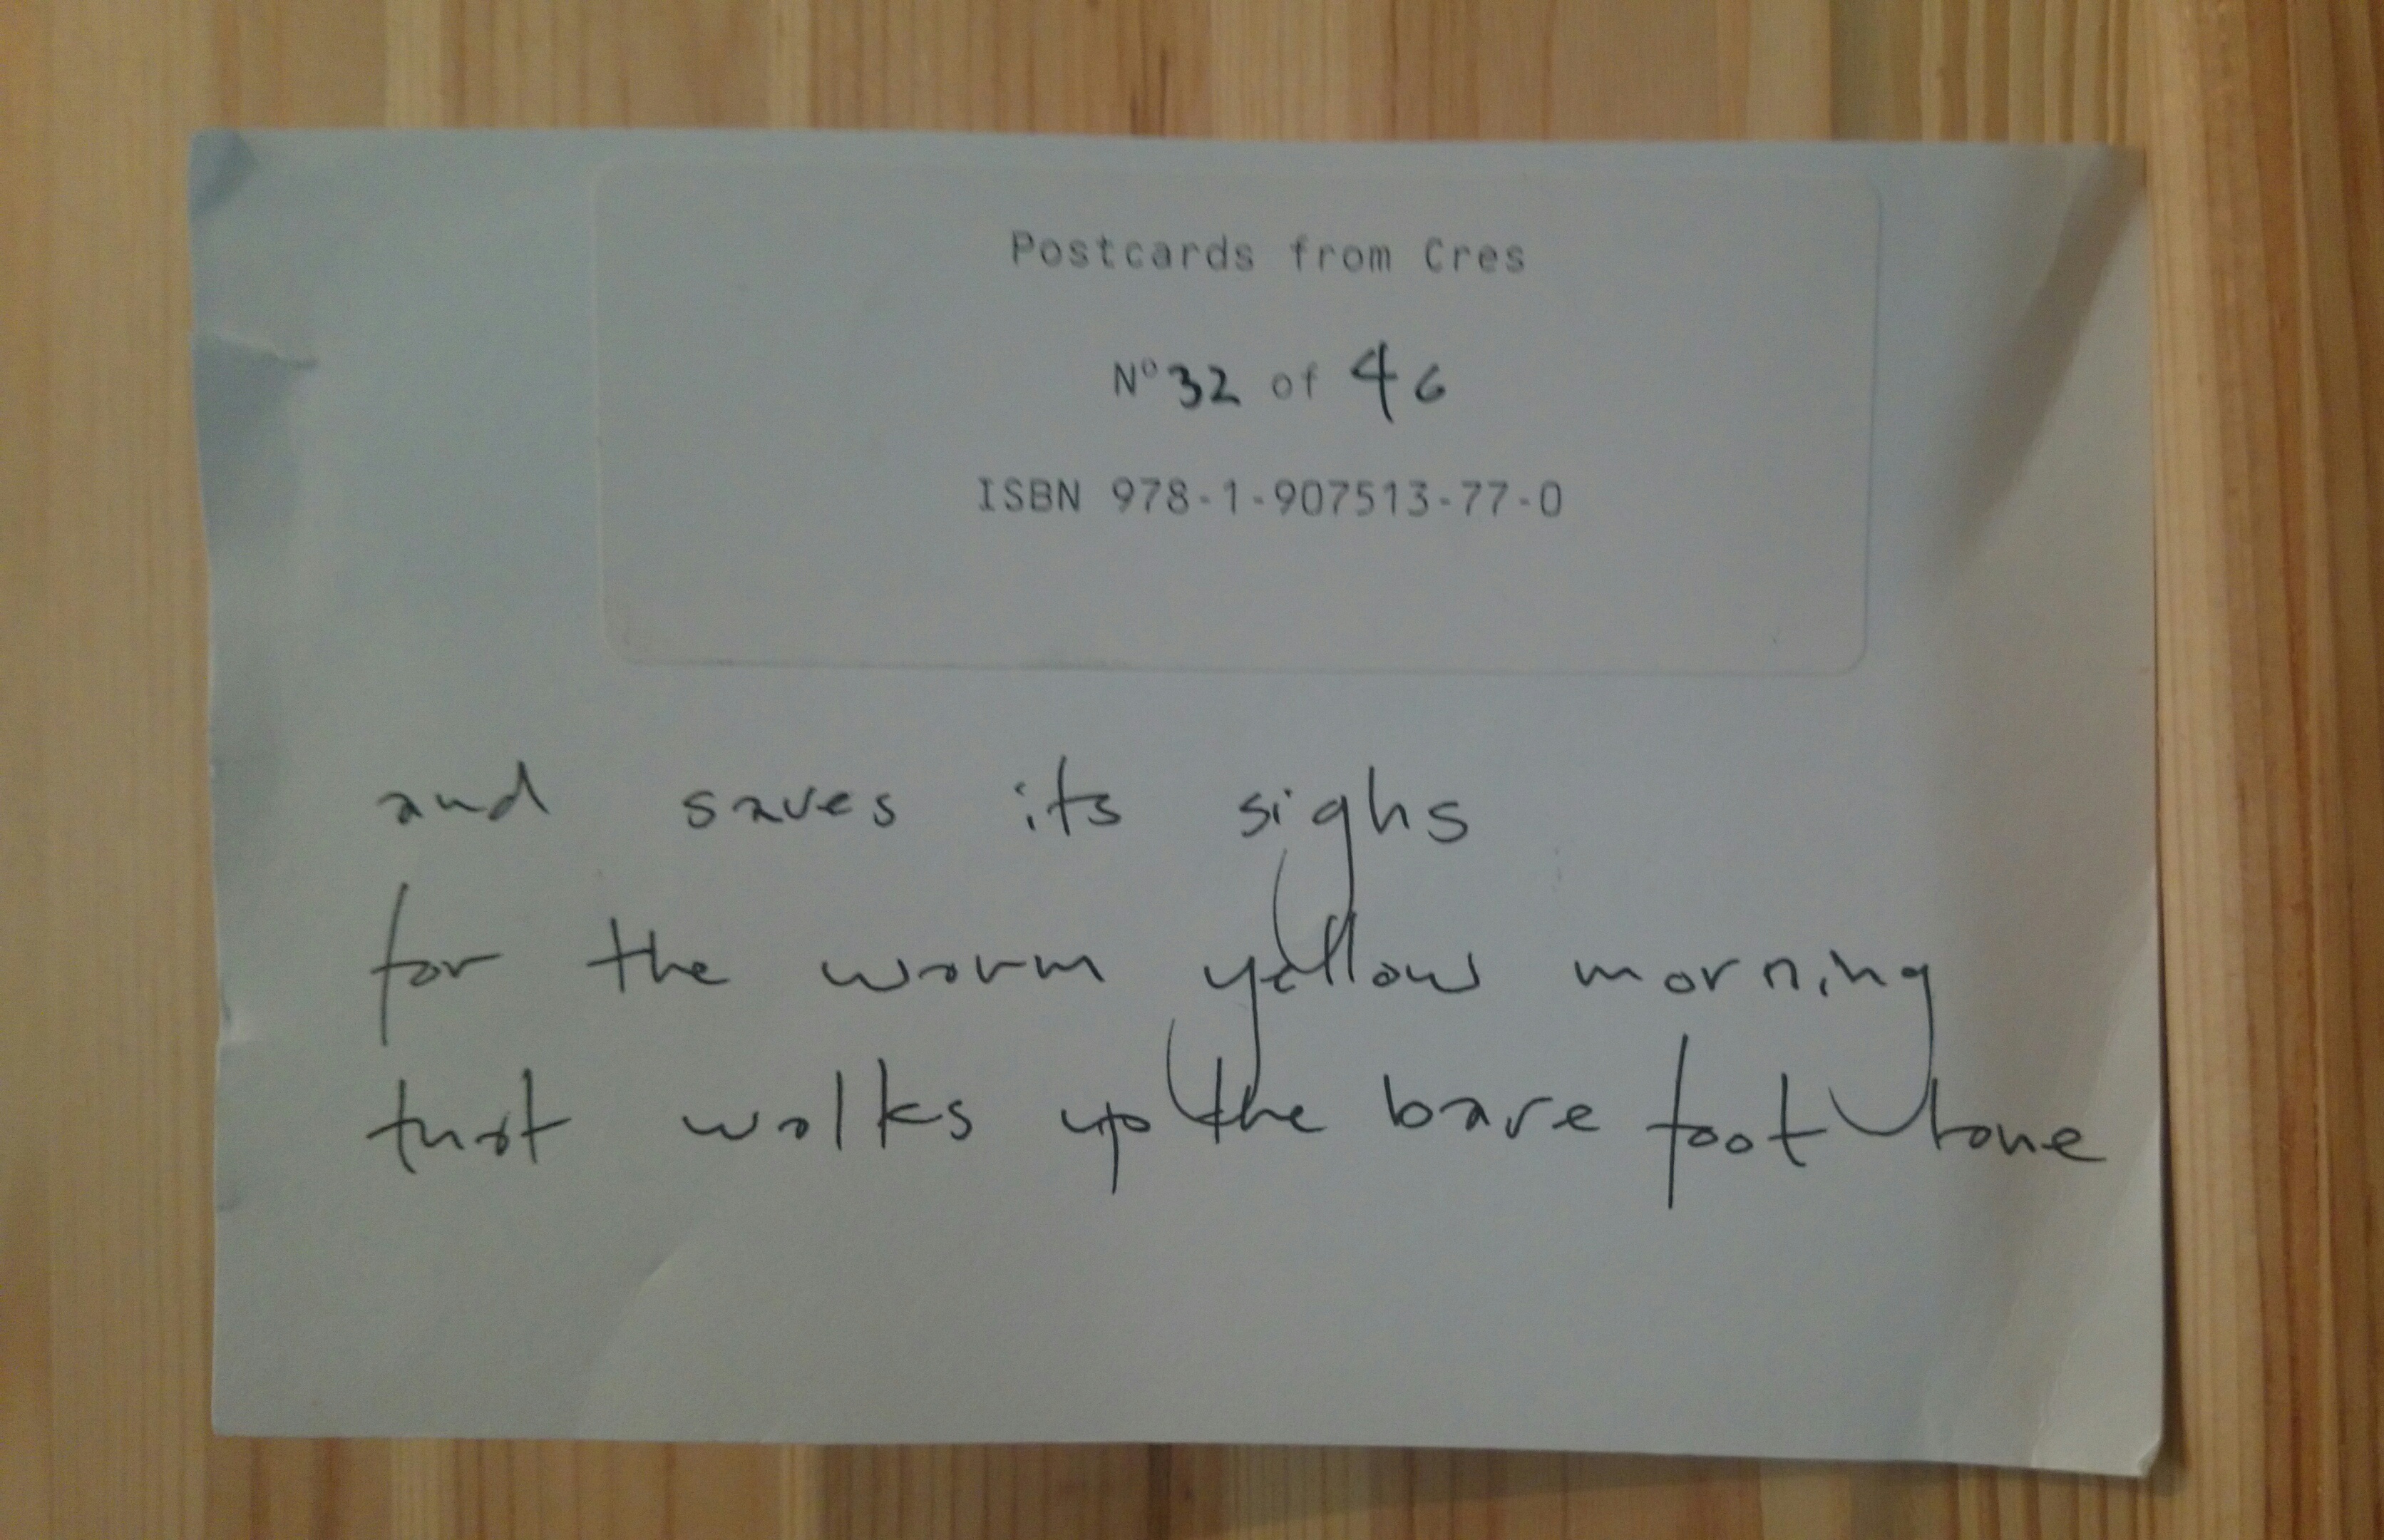 Postcards from Cres
Nº 32 of 46
ISBN 978-1-907513-77-0
and saves its sighs
for the warm yellow morning
that walks up the bare foot lane